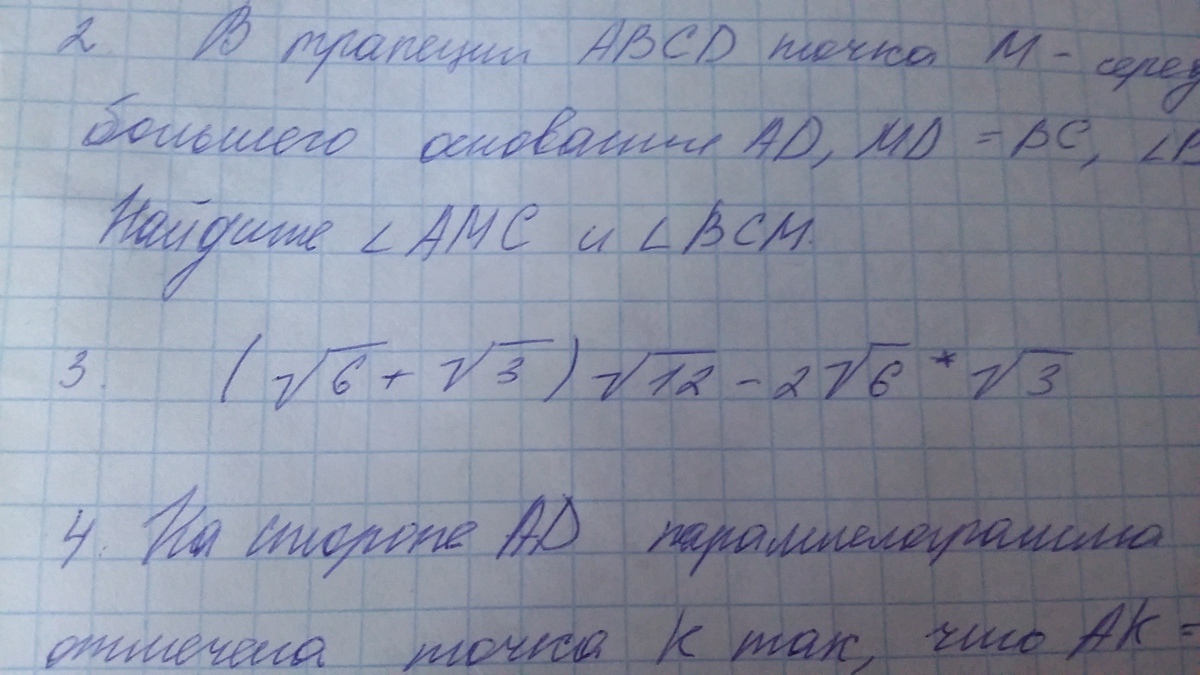 2. В трапеции ABCD точка М - серед
большего основания AD, MD = BC, ∠B
Найдите ∠AMC и ∠BCM.
3. (√6 + √3)√12 - 2√6 * √3
4. На стороне AD параллелограмма
отмечена точка К так, что AK =